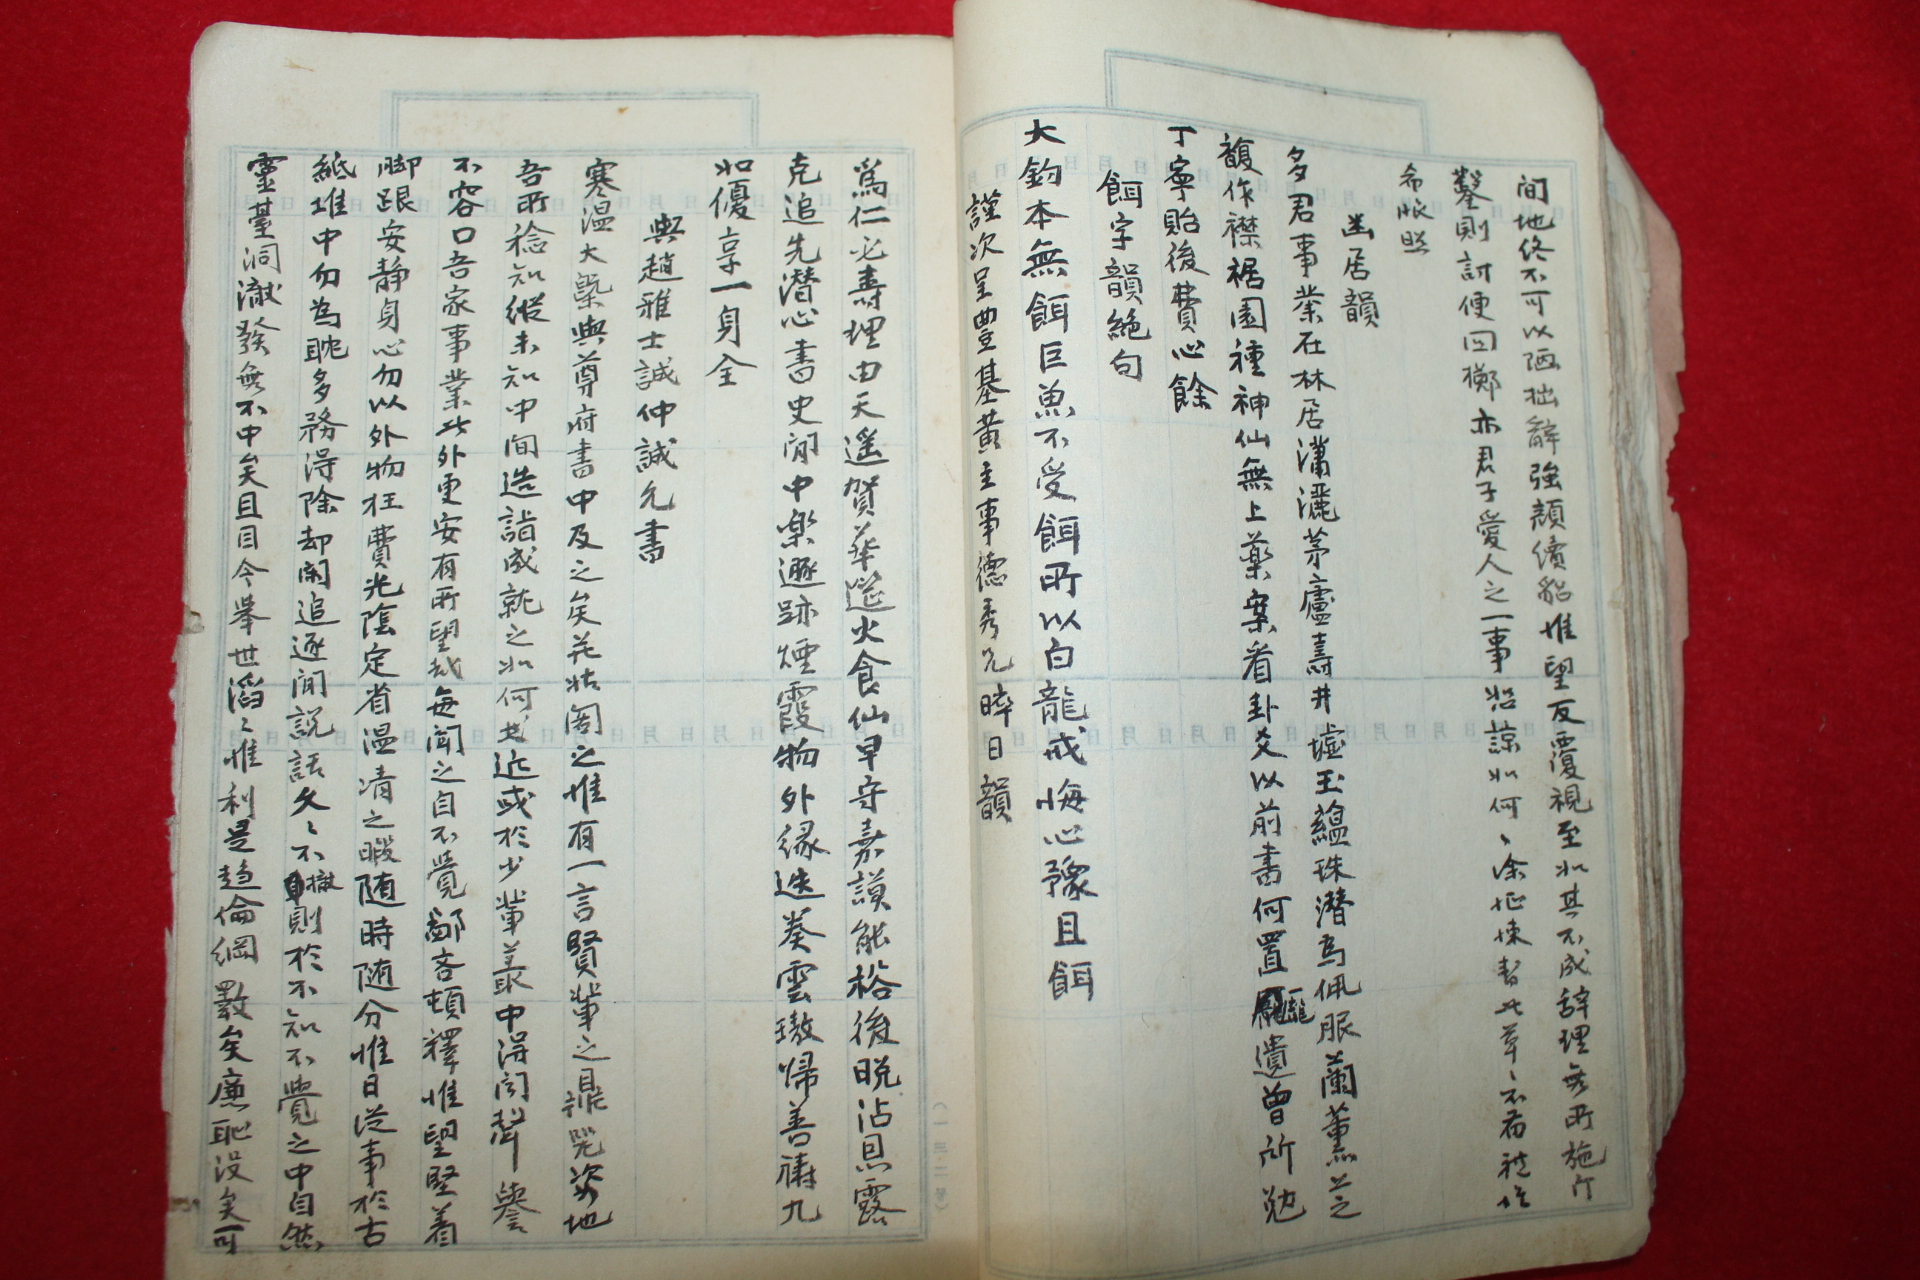 间地終不可以陋拙辭強顏續貂惟望反覆視至如其不成辞理無所施行
鑿則討便回擲亦君子愛人之一事
希眎照
幽居韻
多君事業在林居瀟灑茅廬壽井墟玉蘊珠潜為佩服蘭薰芷之
馥作襟裾園種神仙無上藥案看卦爻以前書何置遺曾所勉
丁寧貽後費心餘
餌字韻絶句
大鈞本無餌巨魚不受餌所以白龍戒悔心豫且餌
謹次呈豊基黄主事德秀兄晬日韻
爲仁必壽理由天遥賀華筵火食仙早守嘉謨能裕後晩沾恩露
克追先潜心書史閒中楽遯跡煙霞物外縁迭奏雲璈帰善禱九
如優享一身全
與趙雅士誠仲誠允書
寒温大槩與尊府書中及之矣茲置之惟有一言賢輩之姿地
吾所稔知縱未知中间造詣成就之如何尤近或於少輩叢中得闻聲譽
不容口吾家事業此外更安有所望哉每闻之自不覺鄙吝頓釋惟望堅着
脚跟安静身心勿以外物枉費光陰定省温凊之暇随時随分惟日從事於古
紙堆中勿為耽多務得除却闲追逐閒説話久〻不撤則於不知不覺之中自然
靈薹洞澈發無不中矣且目今举世滔〻惟利是趋倫綱斁矣廉恥没矣可